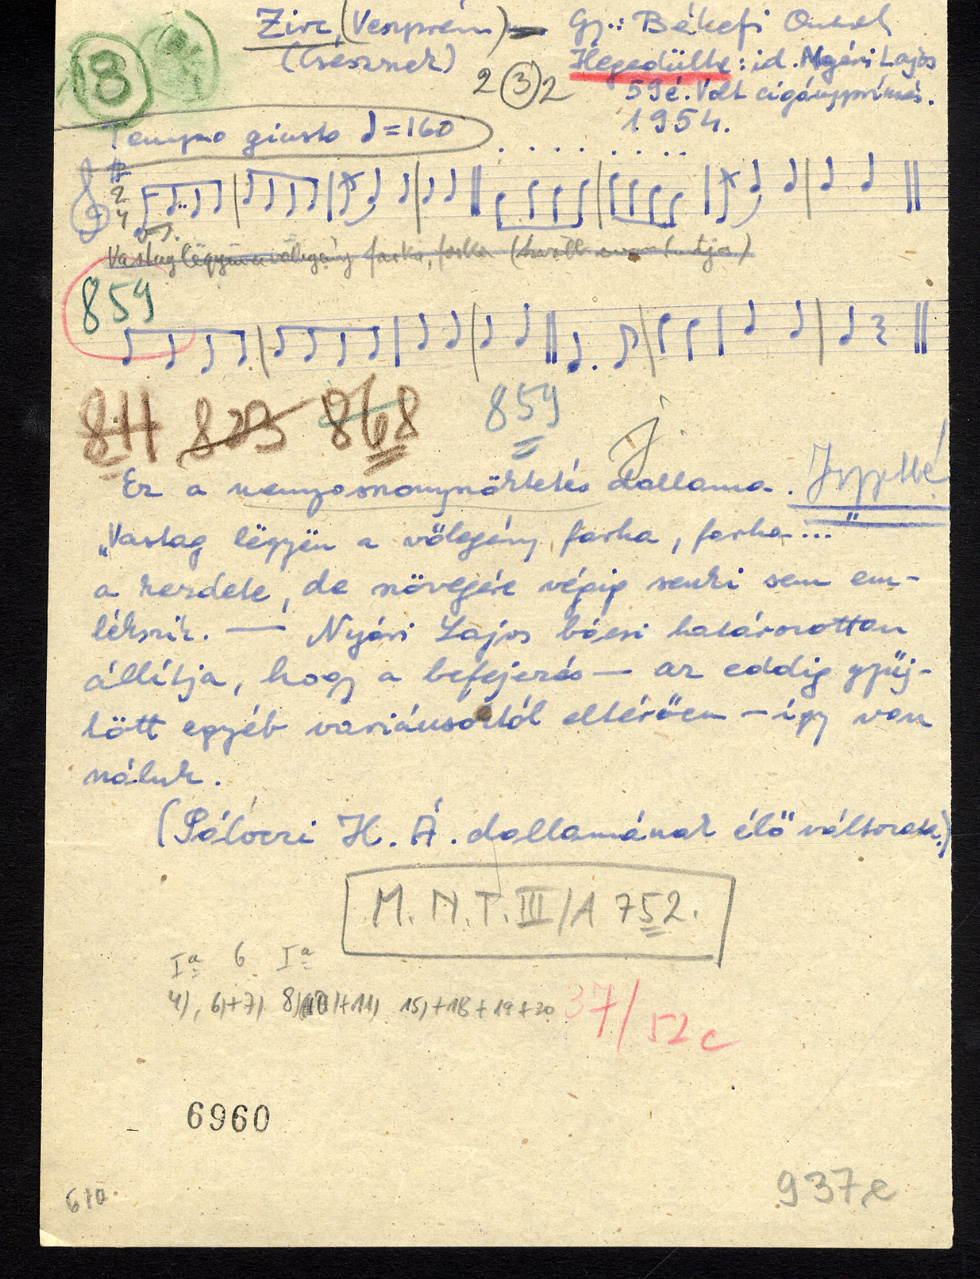 8
Zirc (Veszprém) – Gy.: Békefi Antal
(Csesznek)
Hegedülte: id. Nyári Lajos
2 3 2
59 é. Volt cigányprímás.
1954.
Tempo giusto ♩=160
2
4
Vastag légyën a vőlegény farka, farka
859
811 823 868 859
Ez a menyasszonyporkoltetés dallama.
„Vastag légyën a vőlegény farka, farka..."
a kezdete, de szövegére végig senki sem em-
lékszik. — Nyári Lajos bácsi határozottan
állítja, hogy a befejezés — az eddig gyűj-
tött egyéb variánsoktól eltérően – így van
náluk.
(Pálóczi H. Á. dallamának élő változata.)
M. N. T. III/A 752.
Iª 6 Iª
4), 6)+7) 15)+18+19+20
37/52c
6960
610.
937e